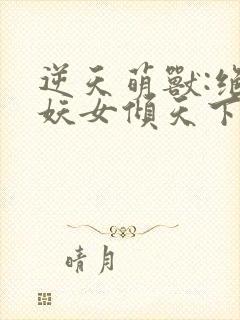 逆天萌獸:絕
妖女傾天下
晴月